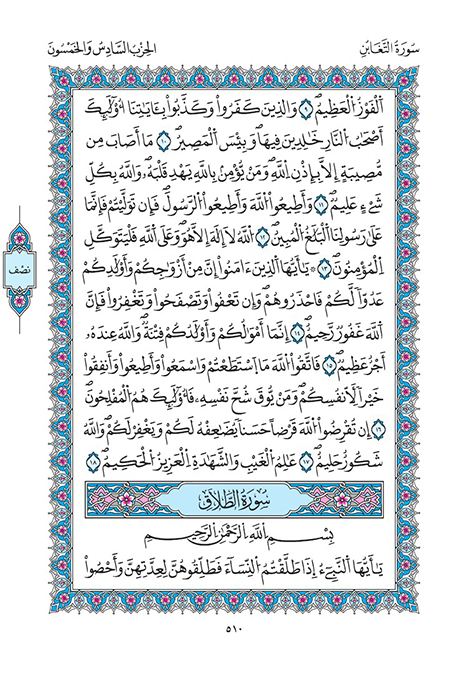 سُورَةُ التَّغَابُنِ الحِزْبُ السَّادِسُ وَالخَمْسُونَ
الْفَوْزُ الْعَظِيمُ ۝٩ وَالَّذِينَ كَفَرُوا وَكَذَّبُوا بِـَٔايَٰتِنَآ أُو۟لَٰٓئِكَ
أَصْحَٰبُ النَّارِ خَٰلِدِينَ فِيهَا ۖ وَبِئْسَ الْمَصِيرُ ۝١٠ مَآ أَصَابَ مِن
مُّصِيبَةٍ إِلَّا بِإِذْنِ اللَّهِ ۗ وَمَن يُؤْمِنۢ بِاللَّهِ يَهْدِ قَلْبَهُۥ ۚ وَاللَّهُ بِكُلِّ
شَىْءٍ عَلِيمٌ ۝١١ وَأَطِيعُوا اللَّهَ وَأَطِيعُوا الرَّسُولَ ۚ فَإِن تَوَلَّيْتُمْ فَإِنَّمَا
عَلَىٰ رَسُولِنَا الْبَلَٰغُ الْمُبِينُ ۝١٢ اللَّهُ لَآ إِلَٰهَ إِلَّا هُوَ ۚ وَعَلَى اللَّهِ فَلْيَتَوَكَّلِ
الْمُؤْمِنُونَ ۝١٣ ۞ يَٰٓأَيُّهَا الَّذِينَ ءَامَنُوٓا إِنَّ مِنْ أَزْوَٰجِكُمْ وَأَوْلَٰدِكُمْ
عَدُوًّا لَّكُمْ فَاحْذَرُوهُمْ ۚ وَإِن تَعْفُوا وَتَصْفَحُوا وَتَغْفِرُوا فَإِنَّ
نصف
اللَّهَ غَفُورٌ رَّحِيمٌ ۝١٤ إِنَّمَآ أَمْوَٰلُكُمْ وَأَوْلَٰدُكُمْ فِتْنَةٌ ۚ وَاللَّهُ عِندَهُۥٓ
أَجْرٌ عَظِيمٌ ۝١٥ فَاتَّقُوا اللَّهَ مَا اسْتَطَعْتُمْ وَاسْمَعُوا وَأَطِيعُوا وَأَنفِقُوا
خَيْرًا لِّأَنفُسِكُمْ ۗ وَمَن يُوقَ شُحَّ نَفْسِهِۦ فَأُو۟لَٰٓئِكَ هُمُ الْمُفْلِحُونَ
۝١٦ إِن تُقْرِضُوا اللَّهَ قَرْضًا حَسَنًا يُضَٰعِفْهُ لَكُمْ وَيَغْفِرْ لَكُمْ ۚ وَاللَّهُ
شَكُورٌ حَلِيمٌ ۝١٧ عَٰلِمُ الْغَيْبِ وَالشَّهَٰدَةِ الْعَزِيزُ الْحَكِيمُ ۝١٨
سُورَةُ الطَّلَاقِ
بِسْمِ اللَّهِ الرَّحْمَٰنِ الرَّحِيمِ
يَٰٓأَيُّهَا النَّبِىُّ إِذَا طَلَّقْتُمُ النِّسَآءَ فَطَلِّقُوهُنَّ لِعِدَّتِهِنَّ وَأَحْصُوا
٥١٠